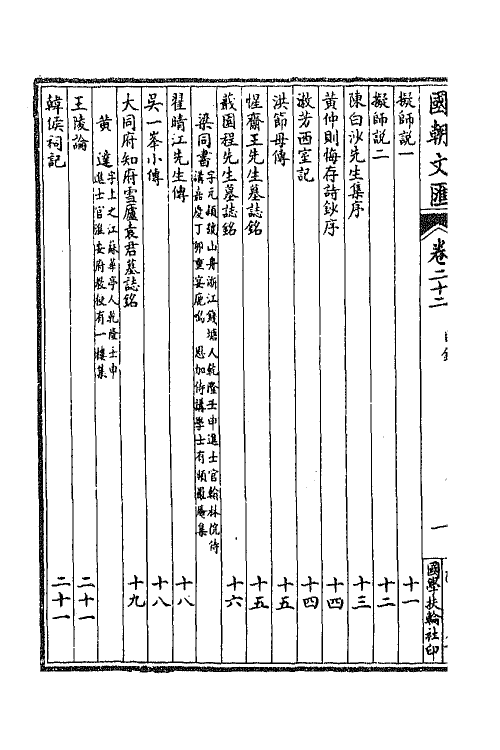 國朝文匯 卷二十二 目錄 一 國學扶輪社印
擬師說一 十一
擬師說二 十二
陳白沙先生集序 十三
黃仲則悔存詩鈔序 十四
漱芳西室記 十四
洪節母傳 十五
惺齋王先生墓誌銘 十五
蕺園程先生墓誌銘 十六
梁同書 字元頴號山舟浙江錢塘人乾隆壬申進士官翰林院侍
講嘉慶丁卯重宴鹿鳴 恩加侍講學士有頻羅庵集
翟晴江先生傳 十八
吳一峯小傳 十八
大同府知府雪廬袁君墓誌銘 十九
黃達 字上之江蘇華亭人乾隆壬申
進士官淮安府教授有一樓集
王陵論 二十一
韓侯祠記 二十一